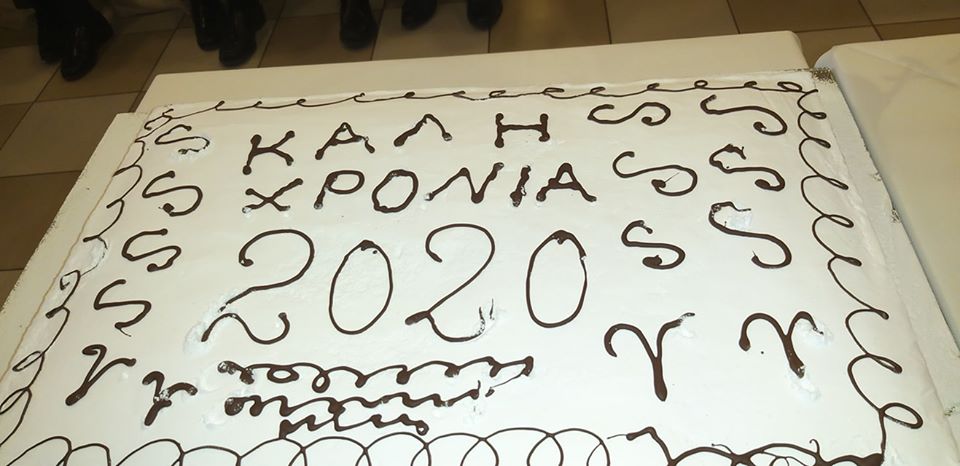 ΚΑΛΗ
ΧΡΟΝΙΑ
2020